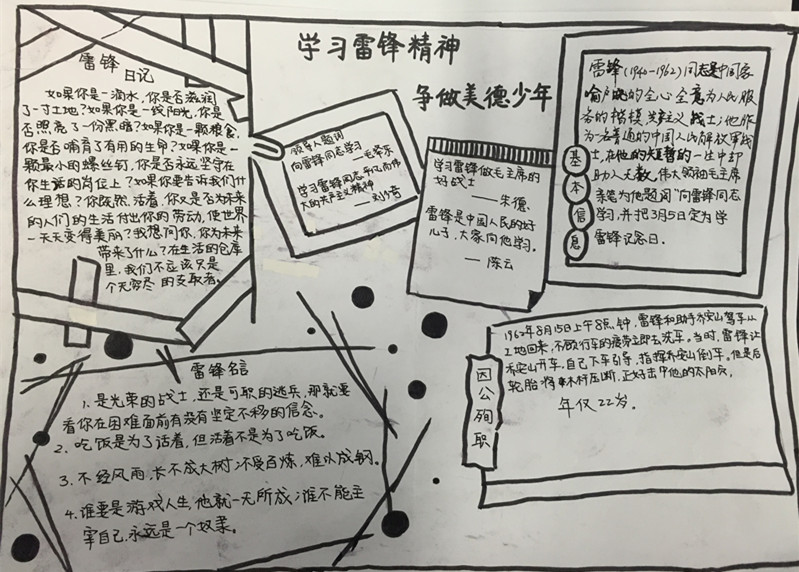 学习雷锋精神
争做美德少年
雷锋日记
如果你是一滴水,你是否滋润
了一寸土地?如果你是一线阳光,你是
否照亮了一份黑暗?如果你是一颗粮食,
你是否哺育了有用的生命?如果你是一
颗最小的螺丝钉,你是否永远坚守在
你生活的岗位上?如果你要告诉我们什
么理想?你既然活着,你又是否为未来
的人们的生活付出你的劳动,使世界
一天天变得美丽?我想问你,你为未来
带来了什么?在生活的仓库
里,我们不应该只是
个无穷尽的支取者。
领导人题词
向雷锋同志学习
—毛泽东
学习雷锋同志平凡而伟
大的共产主义精神
—刘少奇
学习雷锋做毛主席的
好战士
—朱德
雷锋是中国人民的好
儿子,大家向他学习。
—陈云
基本信息
雷锋(1940-1962)同志是中国家
喻户晓的全心全意为人民服
务的楷模,共产主义战士;他作
为一名普通的中国人民解放军战
士,在他的短暂的一生中却
助人无数,伟大领袖毛主席
亲笔为他题词"向雷锋同志
学习,并把3月5日定为学
雷锋记念日。
雷锋名言
1.是光荣的战士,还是可耻的逃兵,那就要
看你在困难面前有没有坚定不移的信念。
2.吃饭是为了活着,但活着不是为了吃饭。
3.不经风雨,长不成大树;不受百炼,难以成钢。
4.谁要是游戏人生,他就一无所成;谁不能主
宰自己,永远是一个奴隶。
因公殉职
1962年8月15日上午8点钟,雷锋和助手乔安山驾车从
工地回来,不顾行车的疲劳立即去洗车。当时,雷锋让
乔安山开车,自己下车引导,指挥乔安山倒车,但是后
轮胎将木杆压断,正好击中他的太阳穴,
年仅22岁。